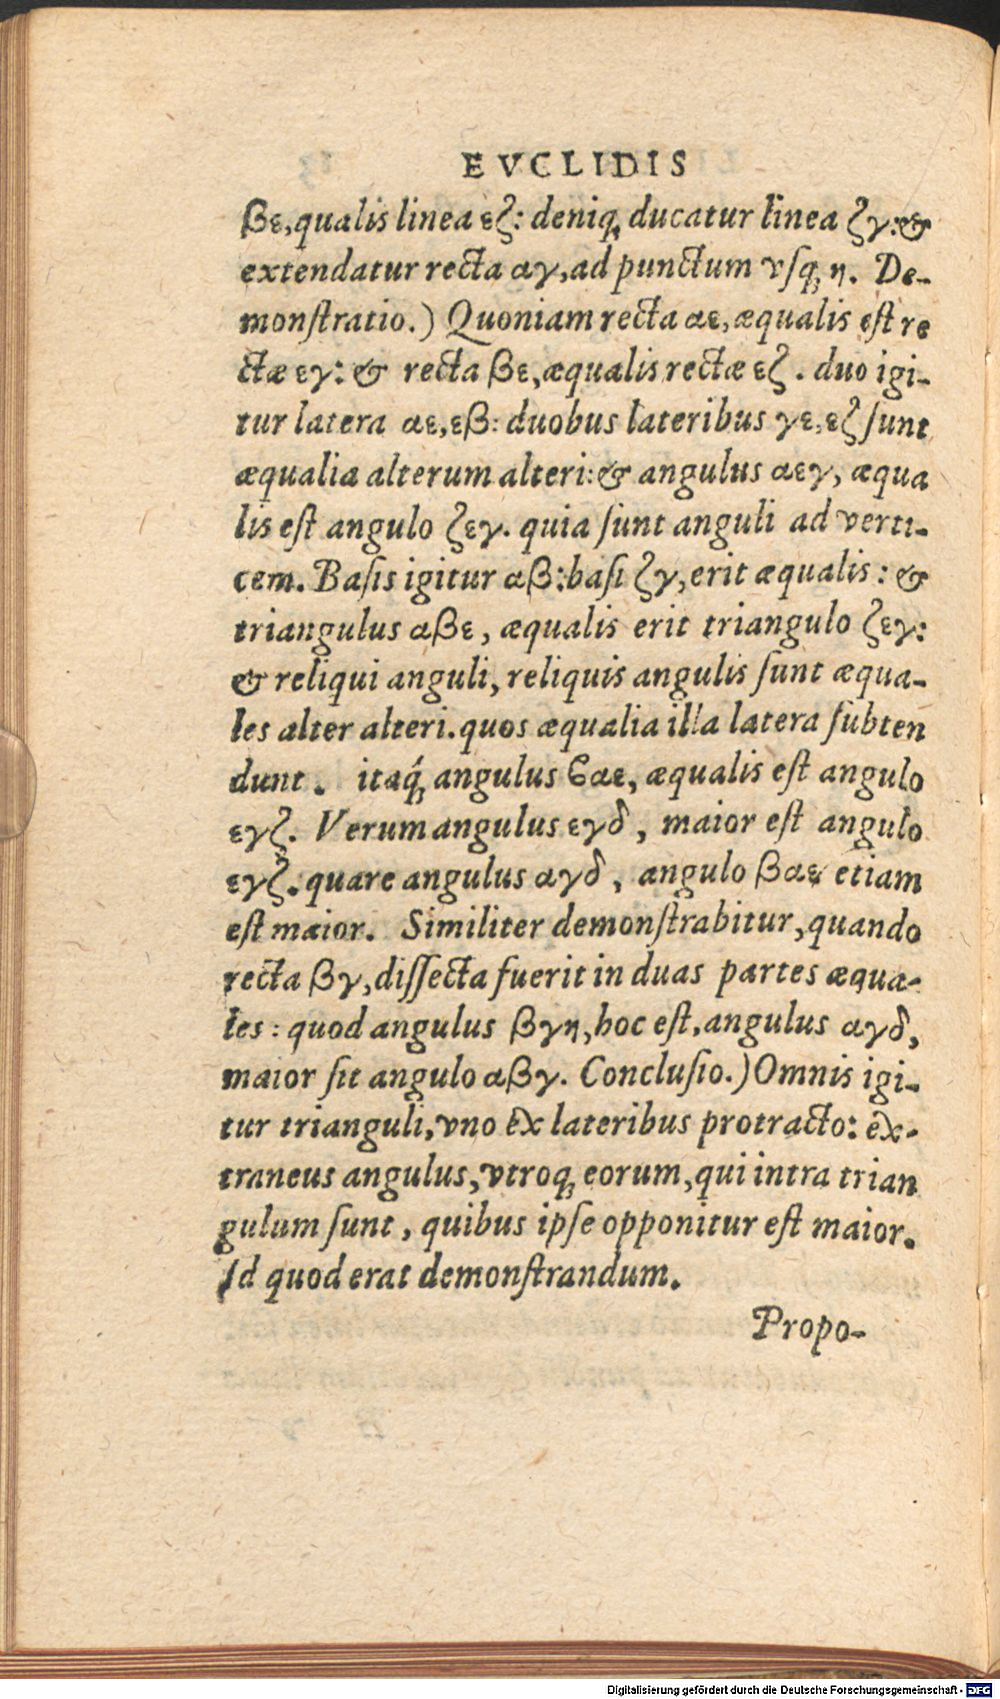 EVCLIDIS
βε, qualis linea εζ: deniq; ducatur linea ζγ: &
extendatur recta αγ, ad punctum vſq; η. De-
monſtratio.) Quoniam recta αε, æqualis eſt re
ctæ εγ: & recta βε, æqualis rectæ εζ. duo igi-
tur latera αε, εβ: duobus lateribus γε, εζ ſunt
æqualia alterum alteri: & angulus αεγ, æqua
lis eſt angulo ζεγ. quia ſunt anguli ad verti-
cem. Baſis igitur αβ: baſi ζγ, erit æqualis: &
triangulus αβε, æqualis erit triangulo ζεγ:
& reliqui anguli, reliquis angulis ſunt æqua-
les alter alteri. quos æqualia illa latera ſubten
dunt. itaq́; angulus ϐαε, æqualis eſt angulo
εγζ. Verum angulus εγδ, maior eſt angulo
εγζ. quare angulus αγδ, angulo βαε etiam
eſt maior. Similiter demonſtrabitur, quando
recta βγ, diſſecta fuerit in duas partes æqua-
les: quod angulus βγη, hoc eſt, angulus αγδ,
maior ſit angulo αβγ. Concluſio.) Omnis igi-
tur trianguli, vno ex lateribus protracto: ex-
traneus angulus, vtroq; eorum, qui intra trian
gulum ſunt, quibus ipſe opponitur eſt maior.
Id quod erat demonſtrandum.
Propo-
Digitalisierung gefördert durch die Deutsche Forschungsgemeinschaft - DFG